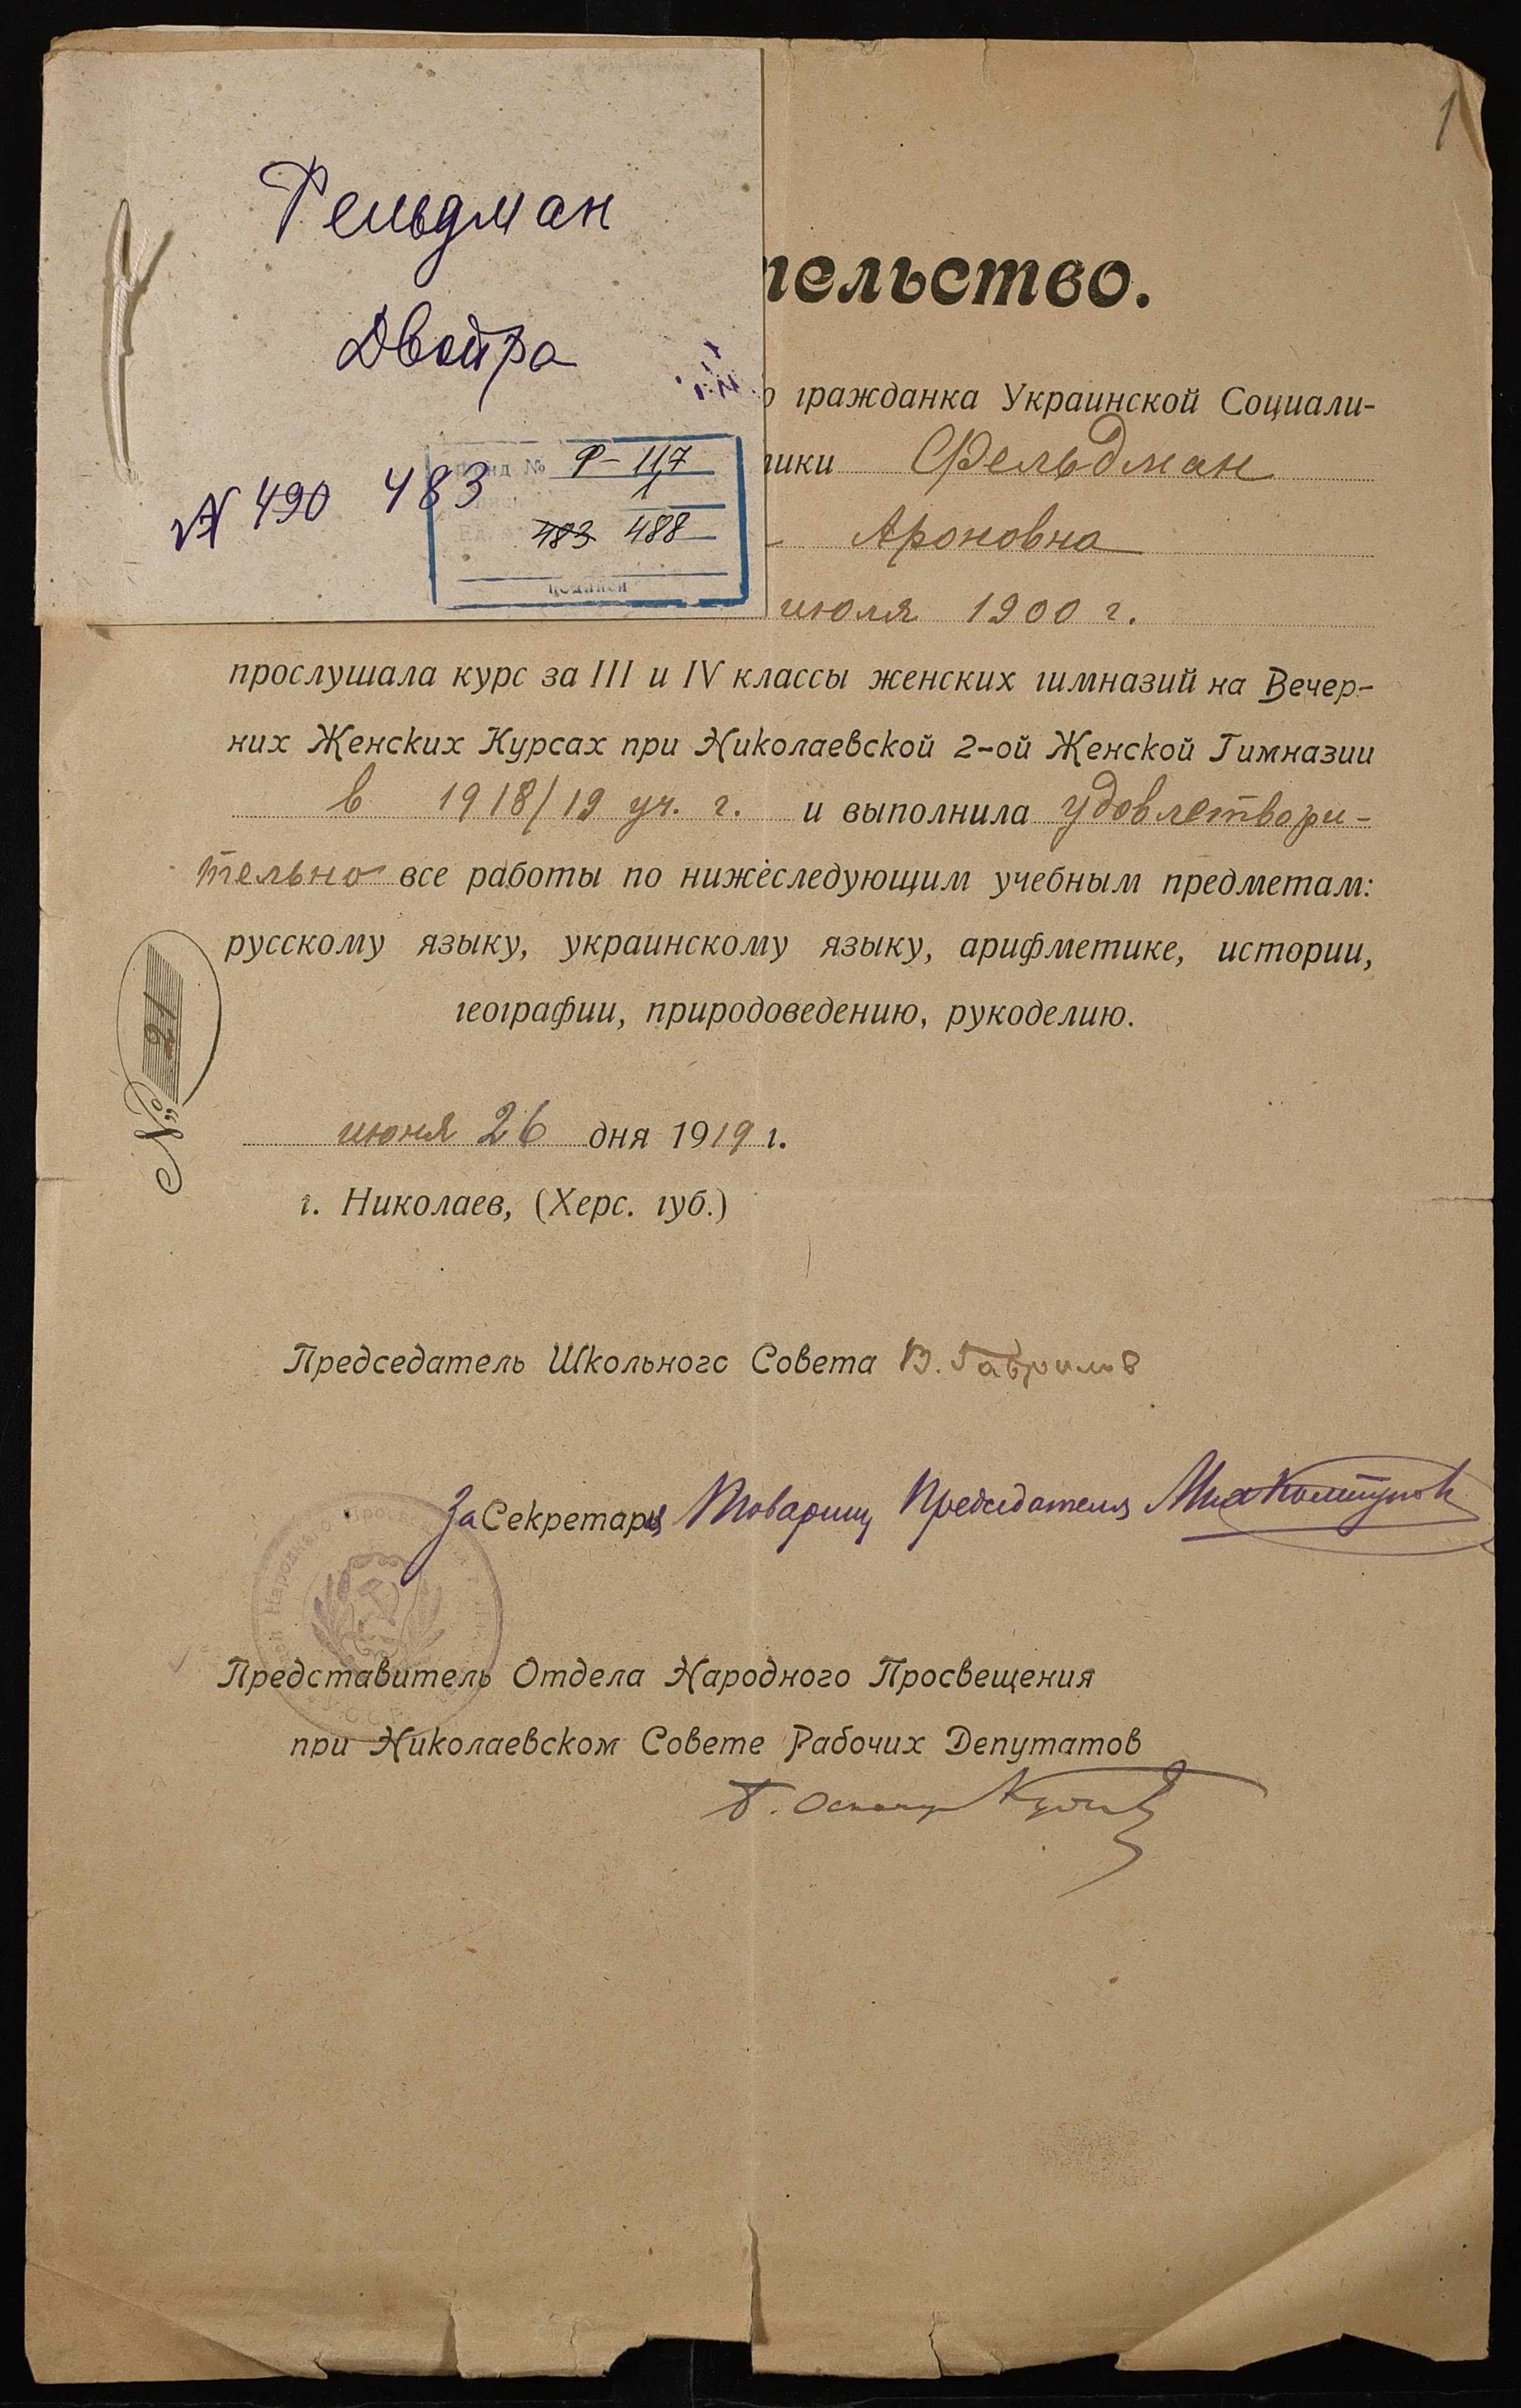 1
Фельдман
Двойра
№ 490 483
Фонд № Р-117
1
483 488
подписи
тельство.
гражданка Украинской Социали-
ики Фельдман
Ароновна
июля 1900 г.
прослушала курс за III и IV классы женских гимназий на Вечер-
них Женских Курсах при Николаевской 2-ой Женской Гимназии
в 1918/19 уч. г. и выполнила удовлетвори-
тельно все работы по нижеследующим учебным предметам:
русскому языку, украинскому языку, арифметике, истории,
географии, природоведению, рукоделию.
№ 21
июня 26 дня 1919 г.
г. Николаев, (Херс. губ.)
Председатель Школьного Совета В. Гаврилов
За Секретаря Товарищ Председателя
Представитель Отдела Народного Просвещения
при Николаевском Совете Рабочих Депутатов